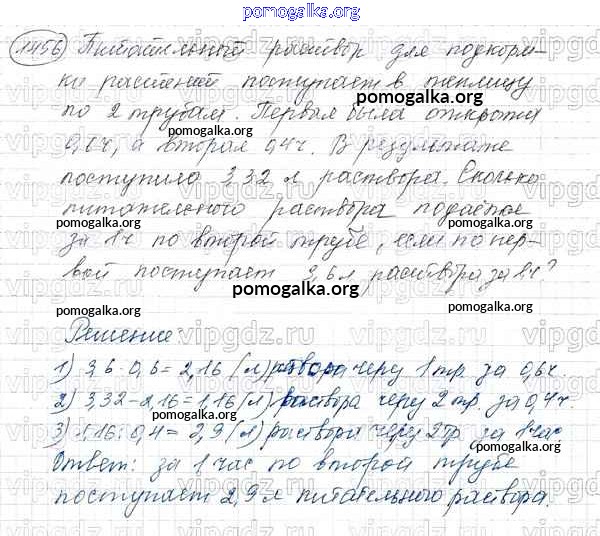 pomogalka.org
1456 Питательный раствор для подкорм-
ки растений поступает в теплицу
по 2 трубам. Первая была открыта
0,6ч, а вторая 0,4ч. В результате
поступило 3,32 л раствора. Сколько
питательного раствора подается
за 1ч по второй трубе, если по пер-
вой поступает 3,6л раствора за 1ч?
Решение
1) 3,6·0,6=2,16 (л) раствора через 1 тр. за 0,6ч.
2) 3,32-2,16=1,16(л) раствора через 2 тр. за 0,4ч.
3) 1,16:0,4=2,9(л) раствора через 2 тр. за 1 час
Ответ: за 1 час по второй трубе
поступает 2,9 л питательного раствора.
pomogalka.org